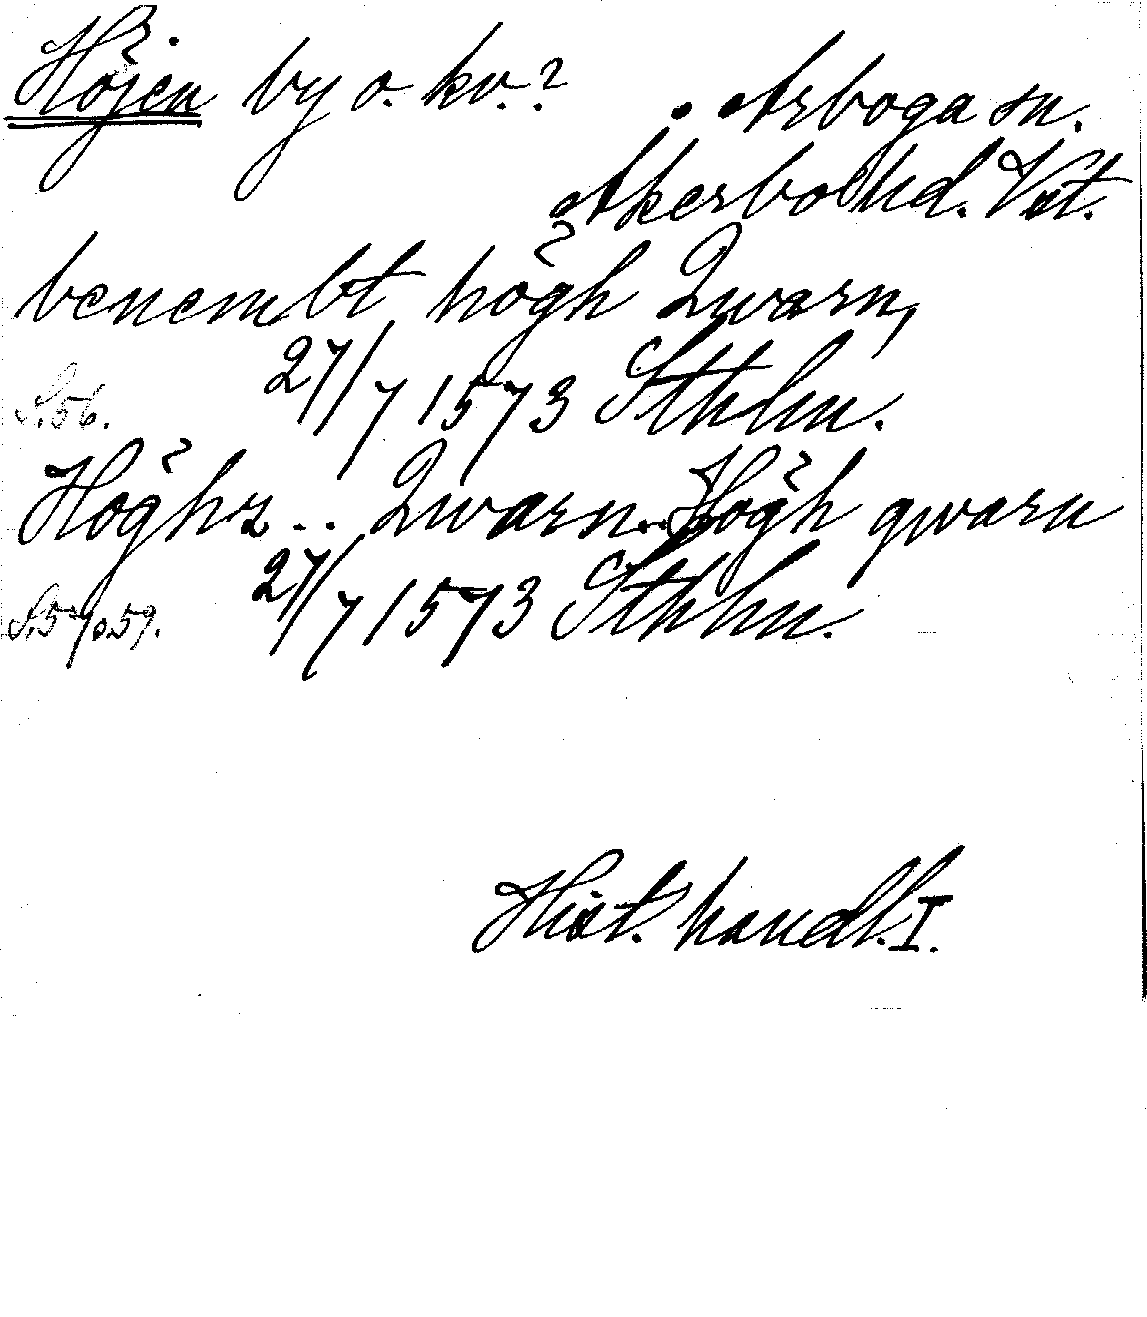 Höjen by o. kv.? Arboga sn.
Åkerbo hd. Vst.
benembt högh Qwarn,
S. 56. 27/7 1573 Sthlm.
Höghz .. Qwarn .. Högh qwarn
S. 57 o. 59. 27/7 1573 Sthlm.
Hist. handl. I.